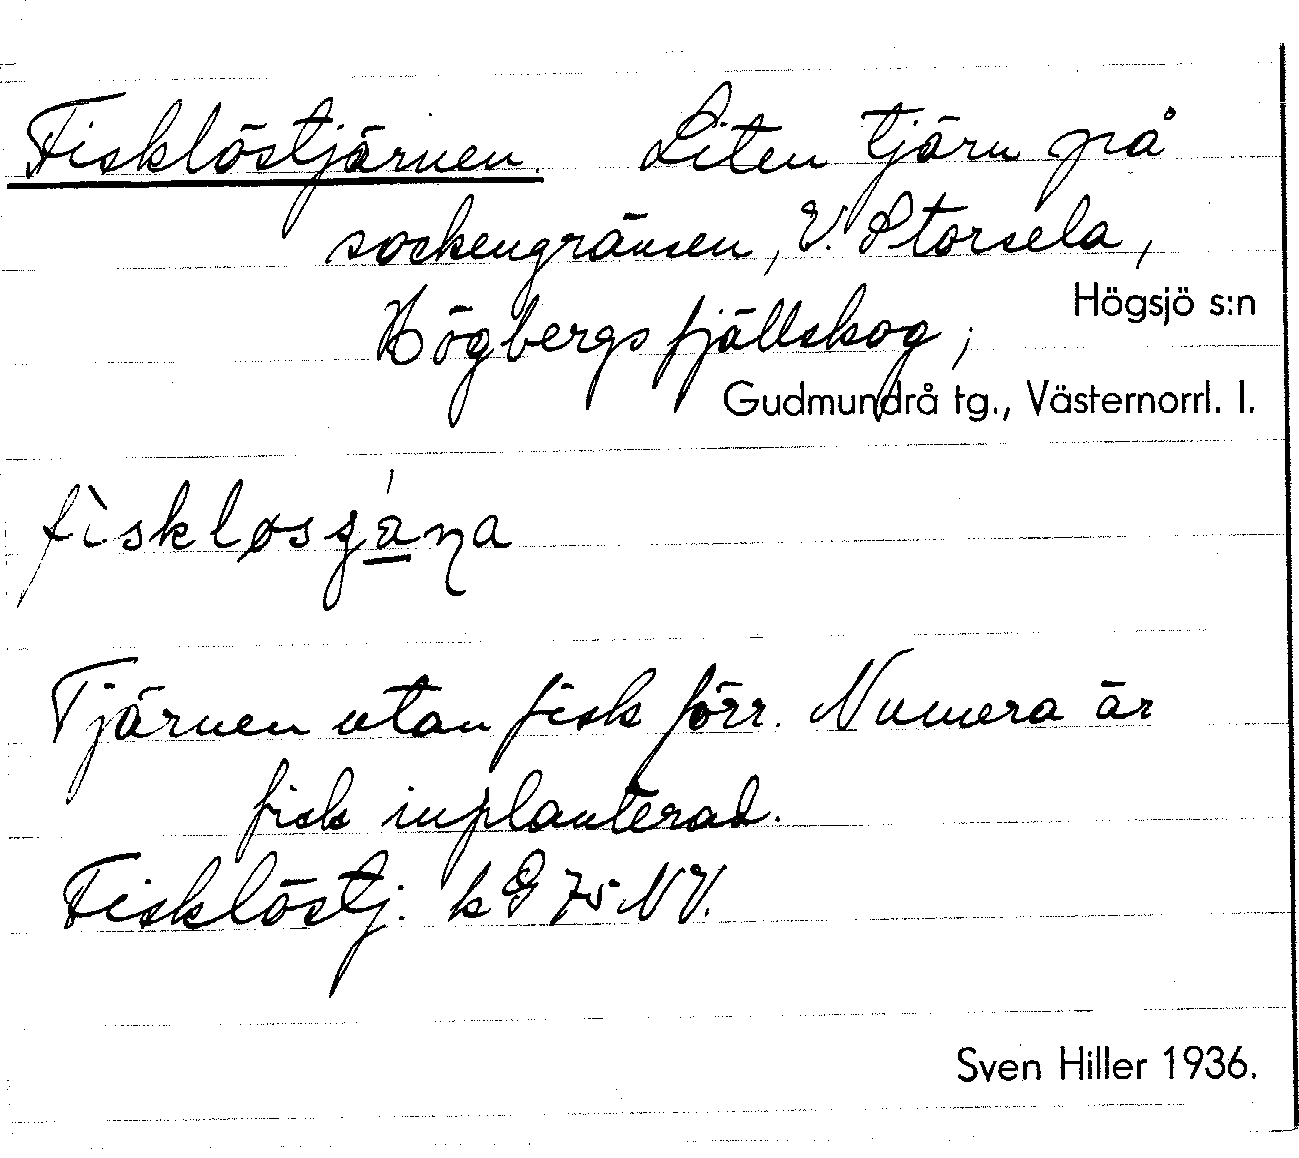 Fisklöstjärnen. Liten tjärn på
sockengränsen, V. Storsela,
Högsjö s:n
Högbergs fjällskog;
Gudmundrå tg., Västernorrl. l.
Tjärnen utan fisk förr. Numera är
fisk inplanterad.
Fisklöstj. kG 75 NV.
Sven Hiller 1936.